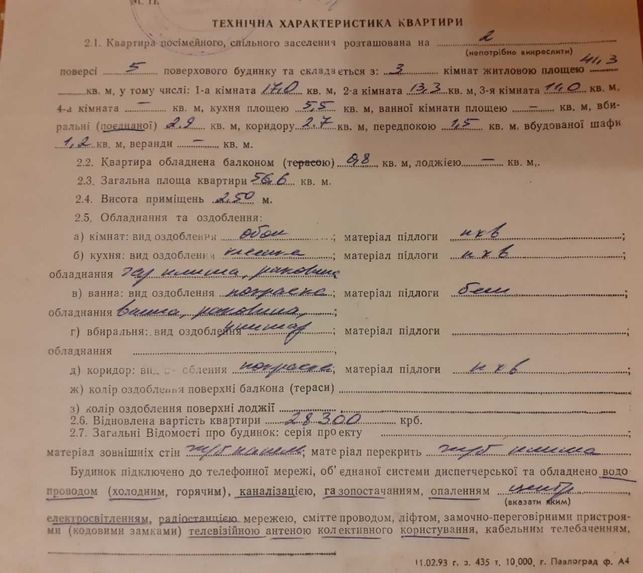 М. П.
ТЕХНІЧНА ХАРАКТЕРИСТИКА КВАРТИРИ
2.1. Квартира посімейного, спільного заселення розташована на 2
(непотрібно викреслити)
поверсі 5 поверхового будинку та складається з: 3 кімнат житловою площею 41,3
кв. м, у тому числі: 1-а кімната 17,0 кв. м, 2-а кімната 13,3 кв. м, 3-я кімната 11,0 кв. м,
4-а кімната — кв. м, кухня площею 5,5 кв. м, ванної кімнати площею — кв. м, вби-
ральні (поєднаної) 2.9 кв. м, коридору 2.7 кв. м, передпокою 1,5 кв. м, вбудованої шафи
1,2 кв. м, веранди — кв. м.
2.2. Квартира обладнена балконом (терасою) 0,8 кв. м, лоджією — кв. м,.
2.3. Загальна площа квартири 56,6 кв. м.
2.4. Висота приміщень 2,50 м.
2.5. Обладнання та оздоблення:
а) кімнат: вид оздоблення обои; матеріал підлоги пхв;
б) кухня: вид оздоблення; матеріал підлоги пхв;
обладнання плита, раковина
в) ванна: вид оздоблення покраска; матеріал підлоги;
обладнання ванна, раковина,
г) вбиральня: вид оздоблення унитаз; матеріал підлоги;
обладнання
д) коридор: вид оздоблення; матеріал підлоги пхв;
ж) колір оздоблення поверхні балкона (тераси)
з) колір оздоблення поверхні лоджії
2.6. Відновлена вартість квартири 28300 крб.
2.7. Загальні Відомості про будинок: серія проекту
матеріал зовнішніх стін ж/б панель, матеріал перекрить ж/б плита
Будинок підключено до телефонної мережі, об'єднаної системи диспетчерської та обладнено водо
проводом (холодним, горячим), каналізацією, газопостачанням, опаленням центр
(вказати яким)
електросвітленням, радіостанцією мережею, сміттєпроводом, ліфтом, замочно-переговірними пристроя-
ми (кодовими замками) телевізійною антеною колективного користування, кабельним телебаченням,
11.02.93 г. з. 435 т. 10,000, г. Павлоград ф. А4